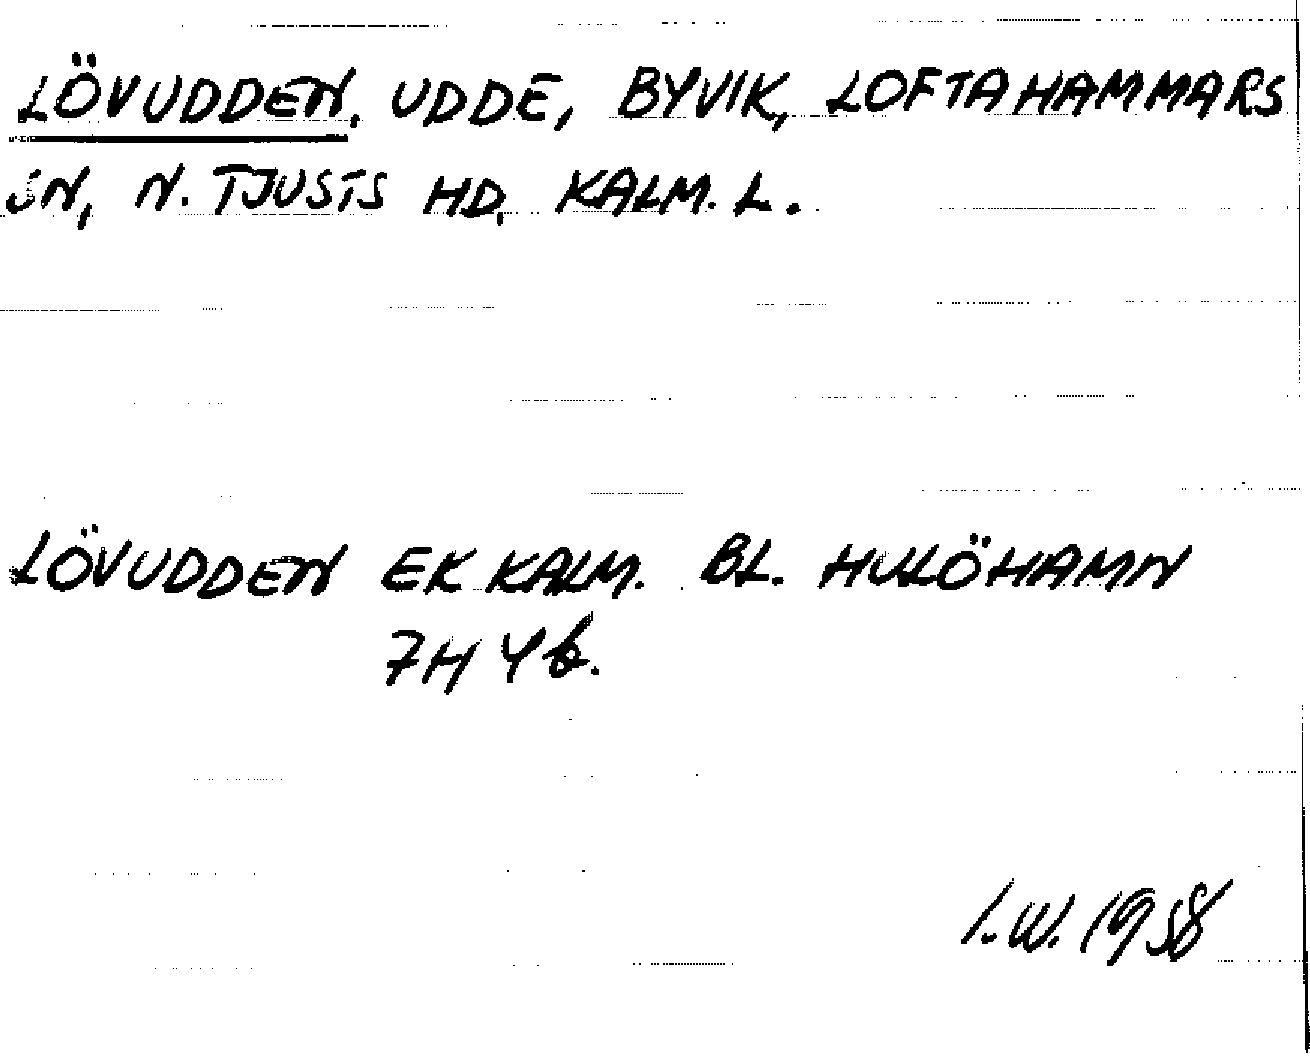 LÖVUDDEN, UDDE, BYVIK, LOFTAHAMMARS
SN, N. TJUSTS HD, KALM. L.
LÖVUDDEN EK KALM. BL. HULÖHAMN
7H 4b.
I.W. 1958